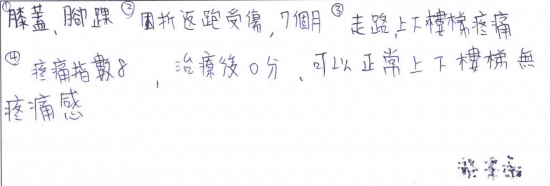 ①膝蓋、腳踝 ②因折返跑受傷,7個月 ③走路,上下樓梯疼痛
④疼痛指數8,治療後0分、可以正常上下樓梯無
疼痛感